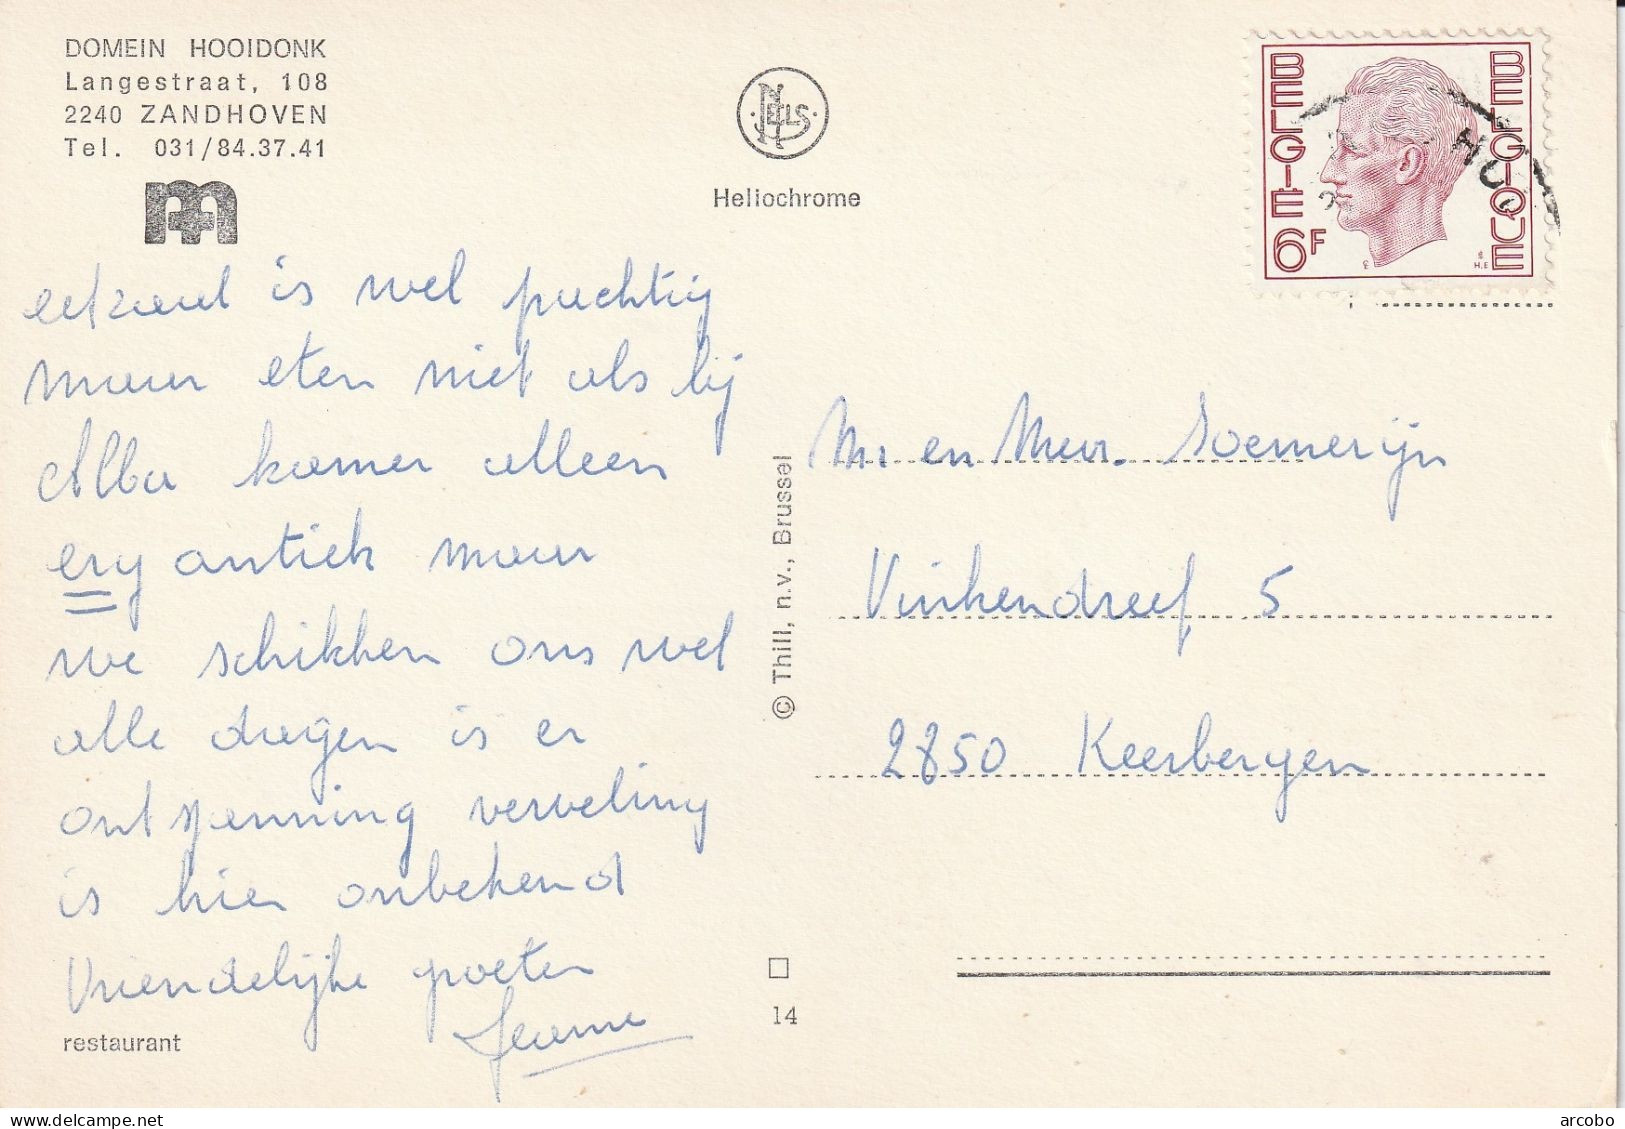 DOMEIN HOOIDONK
Langestraat, 108
2240 ZANDHOVEN
Tel. 031/84.37.41
NELS
Heliochrome
BELGIË
BELGIQUE
6F
eetzaal is wel prachtig
maar eten niet als bij
Alba kamer alleen
erg antiek maar
we schikken ons wel
alle dagen is er
ontspanning verveling
is hier onbekend
Vriendelijke groeten
Jeanne
restaurant
© Thill, n.v., Brussel
14
Mr en Mevr. Soemerijn
Vinkendreef 5
2850 Keerbergen
delcampe.net
arcobo